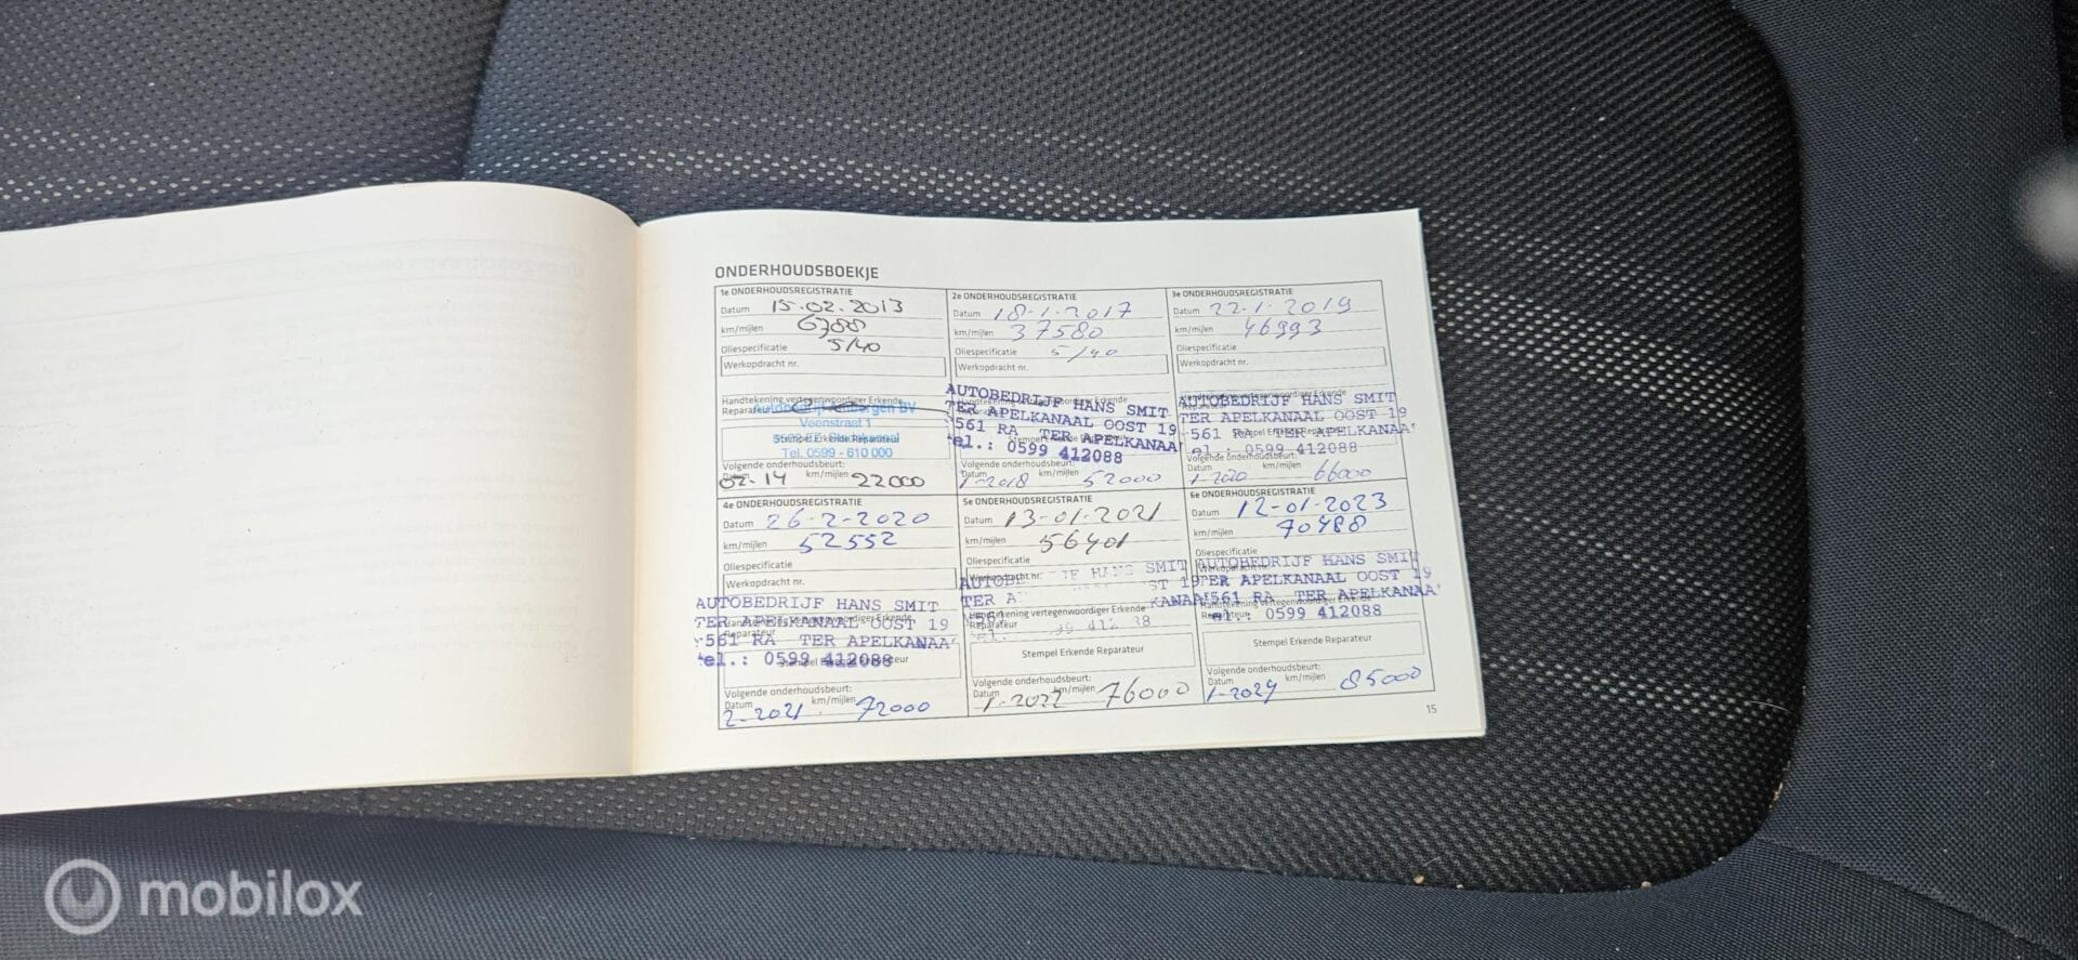 ONDERHOUDSBOEKJE
1e ONDERHOUDSREGISTRATIE
Datum 15.02.2013
km/mijlen 6788
Oliespecificatie 5/40
Werkopdracht nr.
Handtekening vertegenwoordiger Erkende
Reparateur
Veenstraat 1
Stempel Erkende Reparateur
Tel. 0599 - 610 000
Volgende onderhoudsbeurt:
02-14 km/mijlen 22000
2e ONDERHOUDSREGISTRATIE
Datum 18-1-2017
km/mijlen 37580
Oliespecificatie 5/40
Werkopdracht nr.
AUTOBEDRIJF HANS SMIT
TER APELKANAAL OOST 19
561 RA TER APELKANAA
el.: 0599 412088
Volgende onderhoudsbeurt:
Datum km/mijlen
1-2018 52000
3e ONDERHOUDSREGISTRATIE
Datum 22-1-2019
km/mijlen 46993
Oliespecificatie
Werkopdracht nr.
AUTOBEDRIJF HANS SMIT
TER APELKANAAL OOST 19
561 RA TER APELKANAA
el.: 0599 412088
Volgende onderhoudsbeurt:
Datum km/mijlen
1-2020 66000
4e ONDERHOUDSREGISTRATIE
Datum 26-2-2020
km/mijlen 52552
Oliespecificatie
Werkopdracht nr.
AUTOBEDRIJF HANS SMIT
TER APELKANAAL OOST 19
561 RA TER APELKANAA
el.: 0599 412088
Volgende onderhoudsbeurt:
Datum km/mijlen
2-2021 72000
5e ONDERHOUDSREGISTRATIE
Datum 13-01-2021
km/mijlen 56401
Oliespecificatie
Werkopdracht nr.
HANS SMIT
Handtekening vertegenwoordiger Erkende
Reparateur
Stempel Erkende Reparateur
Volgende onderhoudsbeurt:
Datum km/mijlen
1-2022 76000
6e ONDERHOUDSREGISTRATIE
Datum 12-01-2023
km/mijlen 70488
Oliespecificatie
AUTOBEDRIJF HANS SMIT
TER APELKANAAL OOST 19
561 RA TER APELKANAA
el.: 0599 412088
Stempel Erkende Reparateur
Volgende onderhoudsbeurt:
Datum km/mijlen
1-2024 85000
15
mobilox